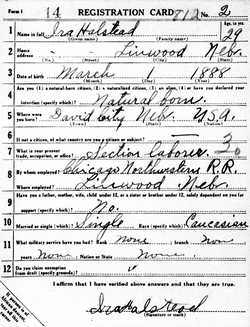 Form 1 14 REGISTRATION CARD 812 No. 2
1 Name in full Ira Halstead Age, in yrs. 29
(Given name) (Family name)
2 Home address Linwood Neb.
(No.) (Street) (City) (State)
3 Date of birth March 1888
(Month) (Day) (Year)
4 Are you (1) a natural-born citizen, (2) a naturalized citizen, (3) an alien, (4) or have you declared your
intention (specify which)? Natural born
5 Where were you born? David City Neb. U.S.A.
(Town) (State) (Nation)
6 If not a citizen, of what country are you a citizen or subject?
7 What is your present trade, occupation, or office? Section laborer
8 By whom employed? Chicago Northwestern R.R.
Where employed? Linwood Neb.
9 Have you a father, mother, wife, child under 12, or a sister or brother under 12, solely dependent on you for
support (specify which)? No.
10 Married or single (which)? Single Race (specify which)? Caucasian
11 What military service have you had? Rank None ; branch None
years None ; Nation or State None
12 Do you claim exemption from draft (specify grounds)?
I affirm that I have verified above answers and that they are true.
Ira Halstead
(Signature or mark)